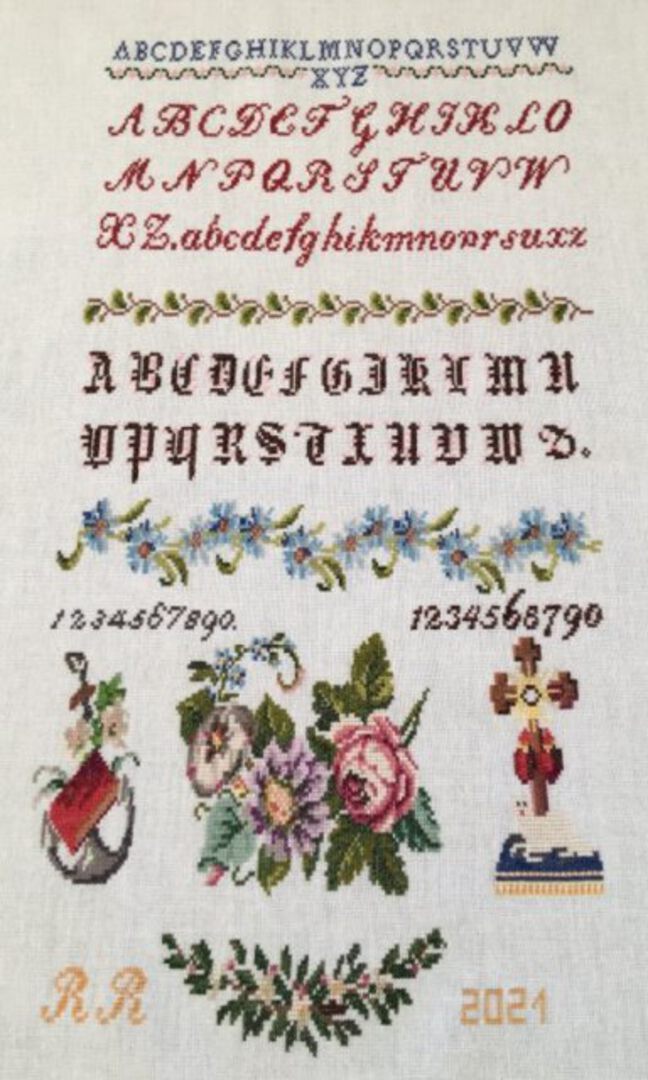 ABCDEFGHIKLMNOPQRSTUVW
XYZ
ABCDEFGHIKLO
MNPQRSTUVW
XZ.abcdefghikmnoprsuxz
ABCDEFGIKLMN
OPQRSTXUVWZ.
1234567890.
1234568790
RR
2021